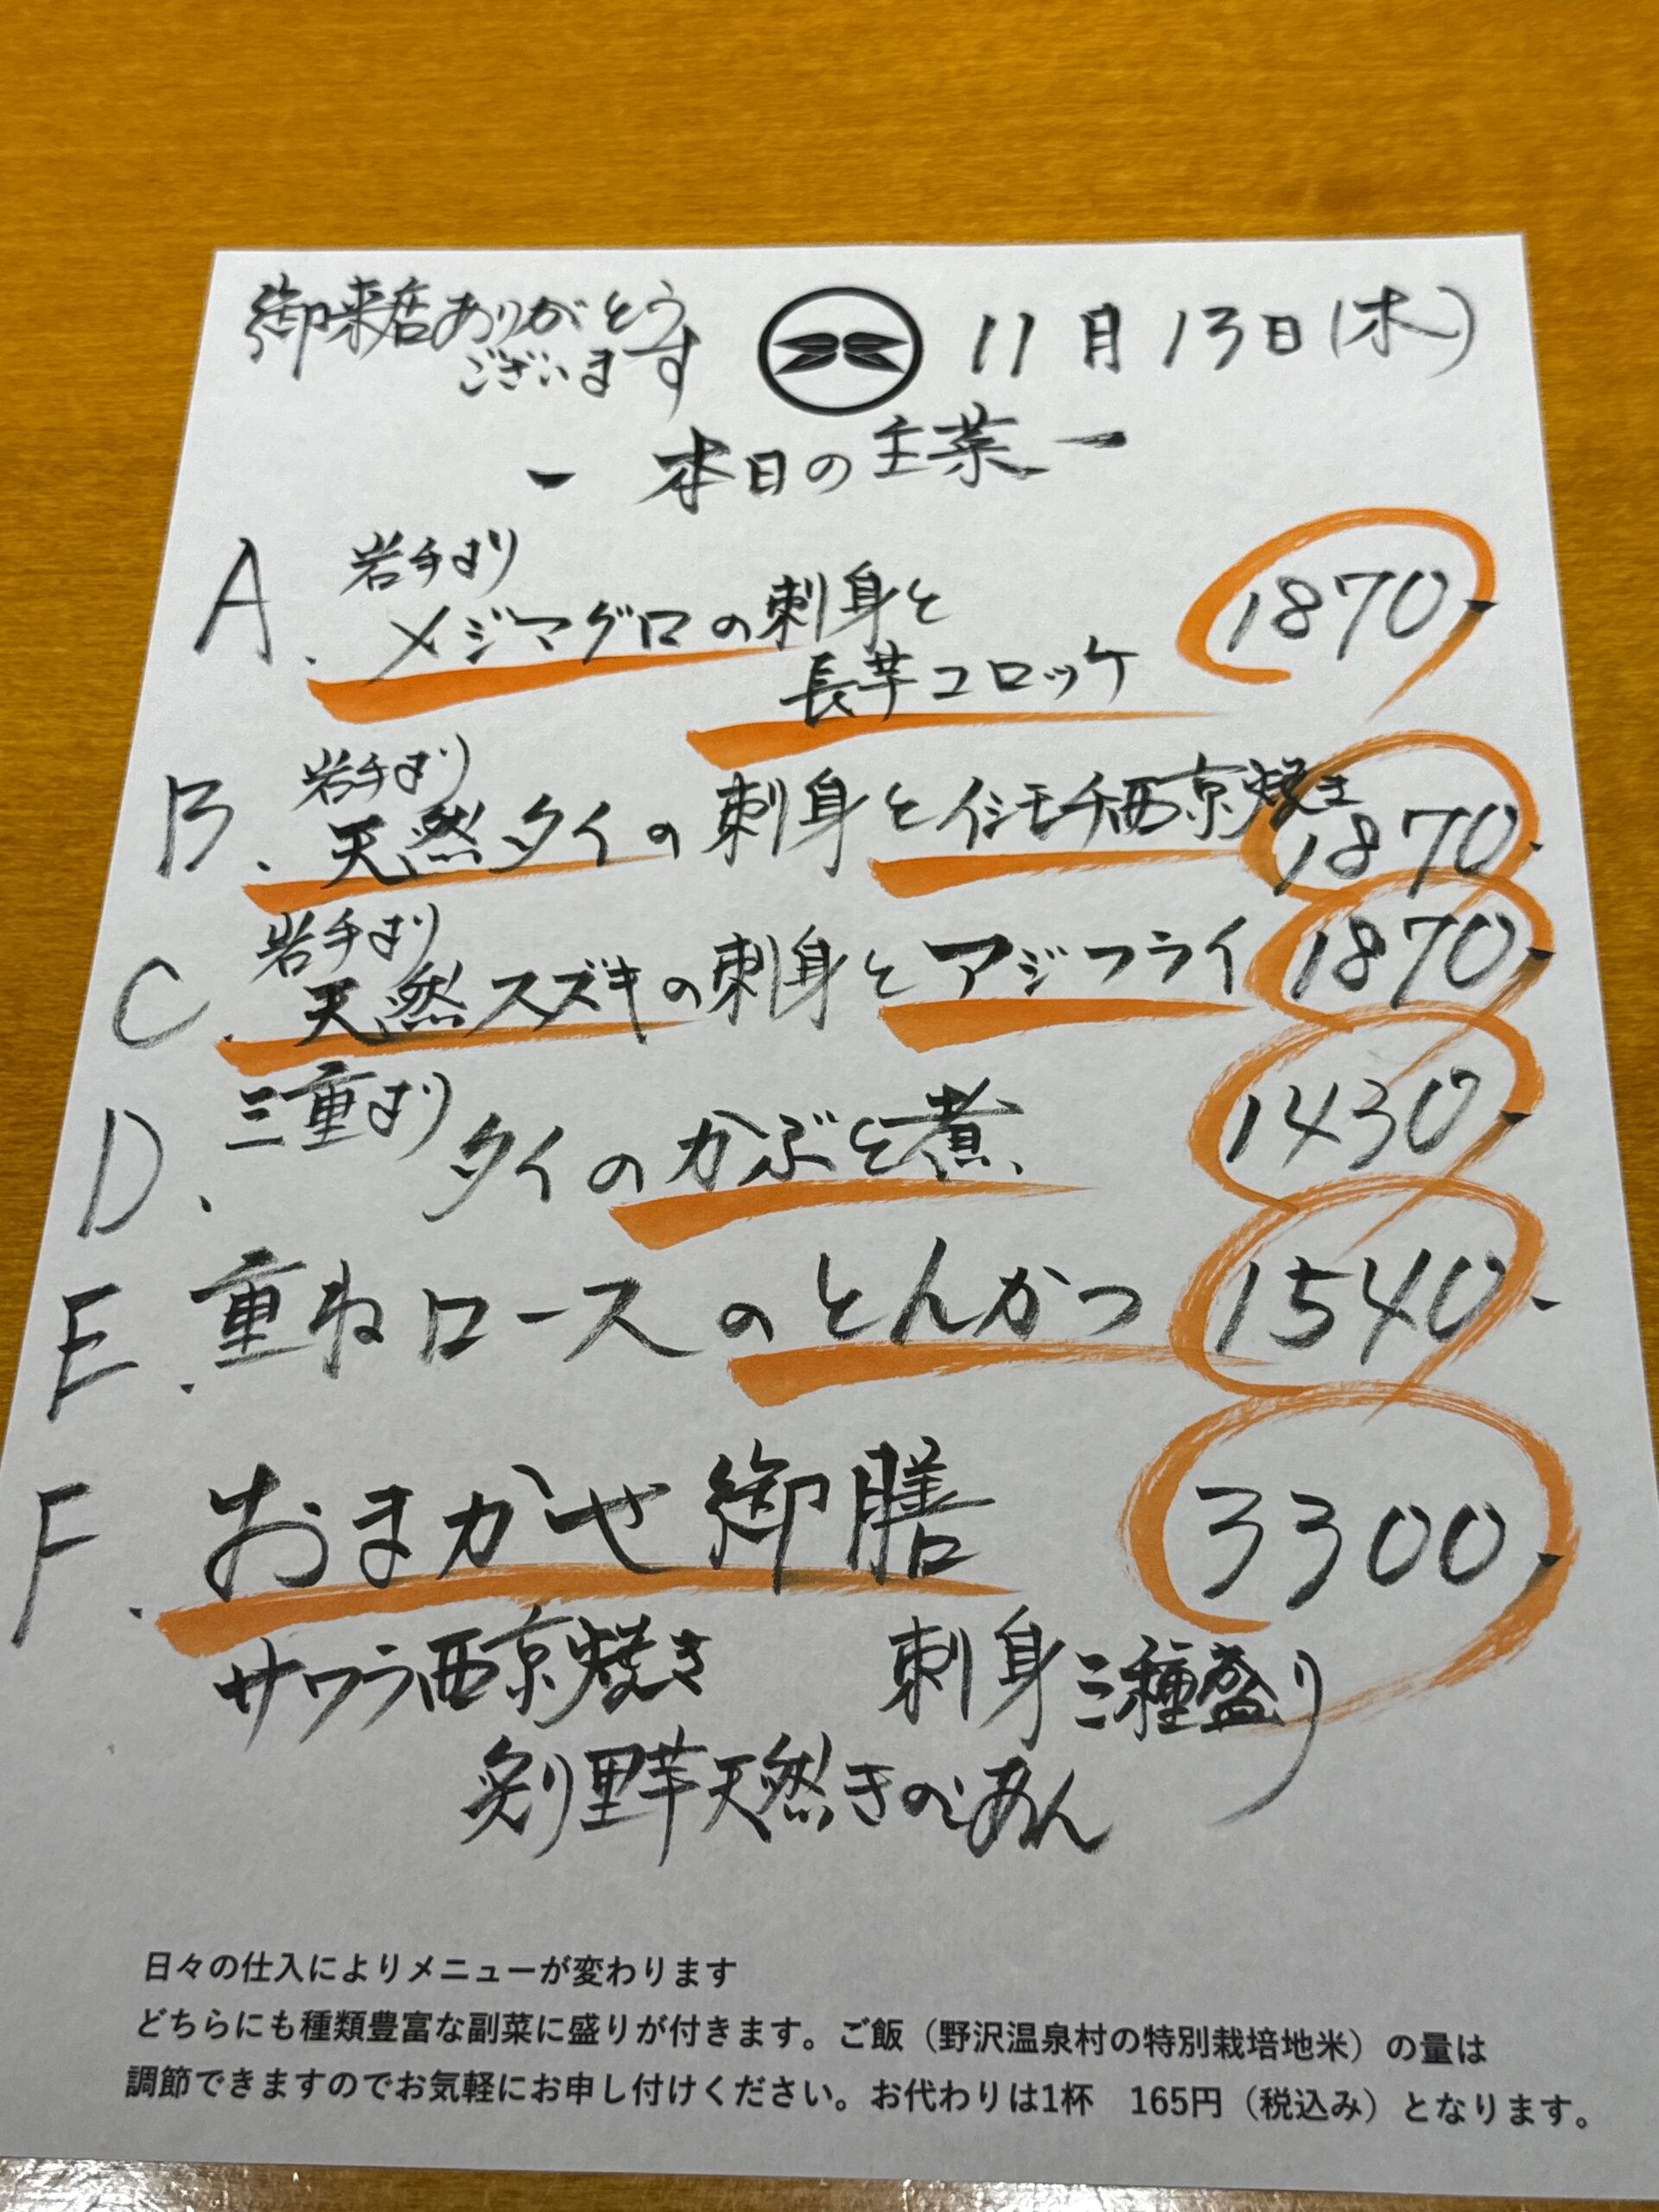 御来店ありがとう
ございます
11月13日(木)
- 本日の主菜 -
A. 岩手より
メジマグロの刺身と
長芋コロッケ
1870-
B. 岩手より
天然タイの刺身とイシモチ西京焼き
1870-
C. 岩手より
天然スズキの刺身とアジフライ 1870-
D. 三重より
タイのかぶと煮 1430-
E. 重ねロースのとんかつ 1540-
F. おまかせ御膳 3300-
サワラ西京焼き 刺身三種盛り
里芋天然きのこあん
日々の仕入によりメニューが変わります
どちらにも種類豊富な副菜に盛りが付きます。ご飯（野沢温泉村の特別栽培地米）の量は
調節できますのでお気軽にお申し付けください。お代わりは1杯 165円（税込み）となります。